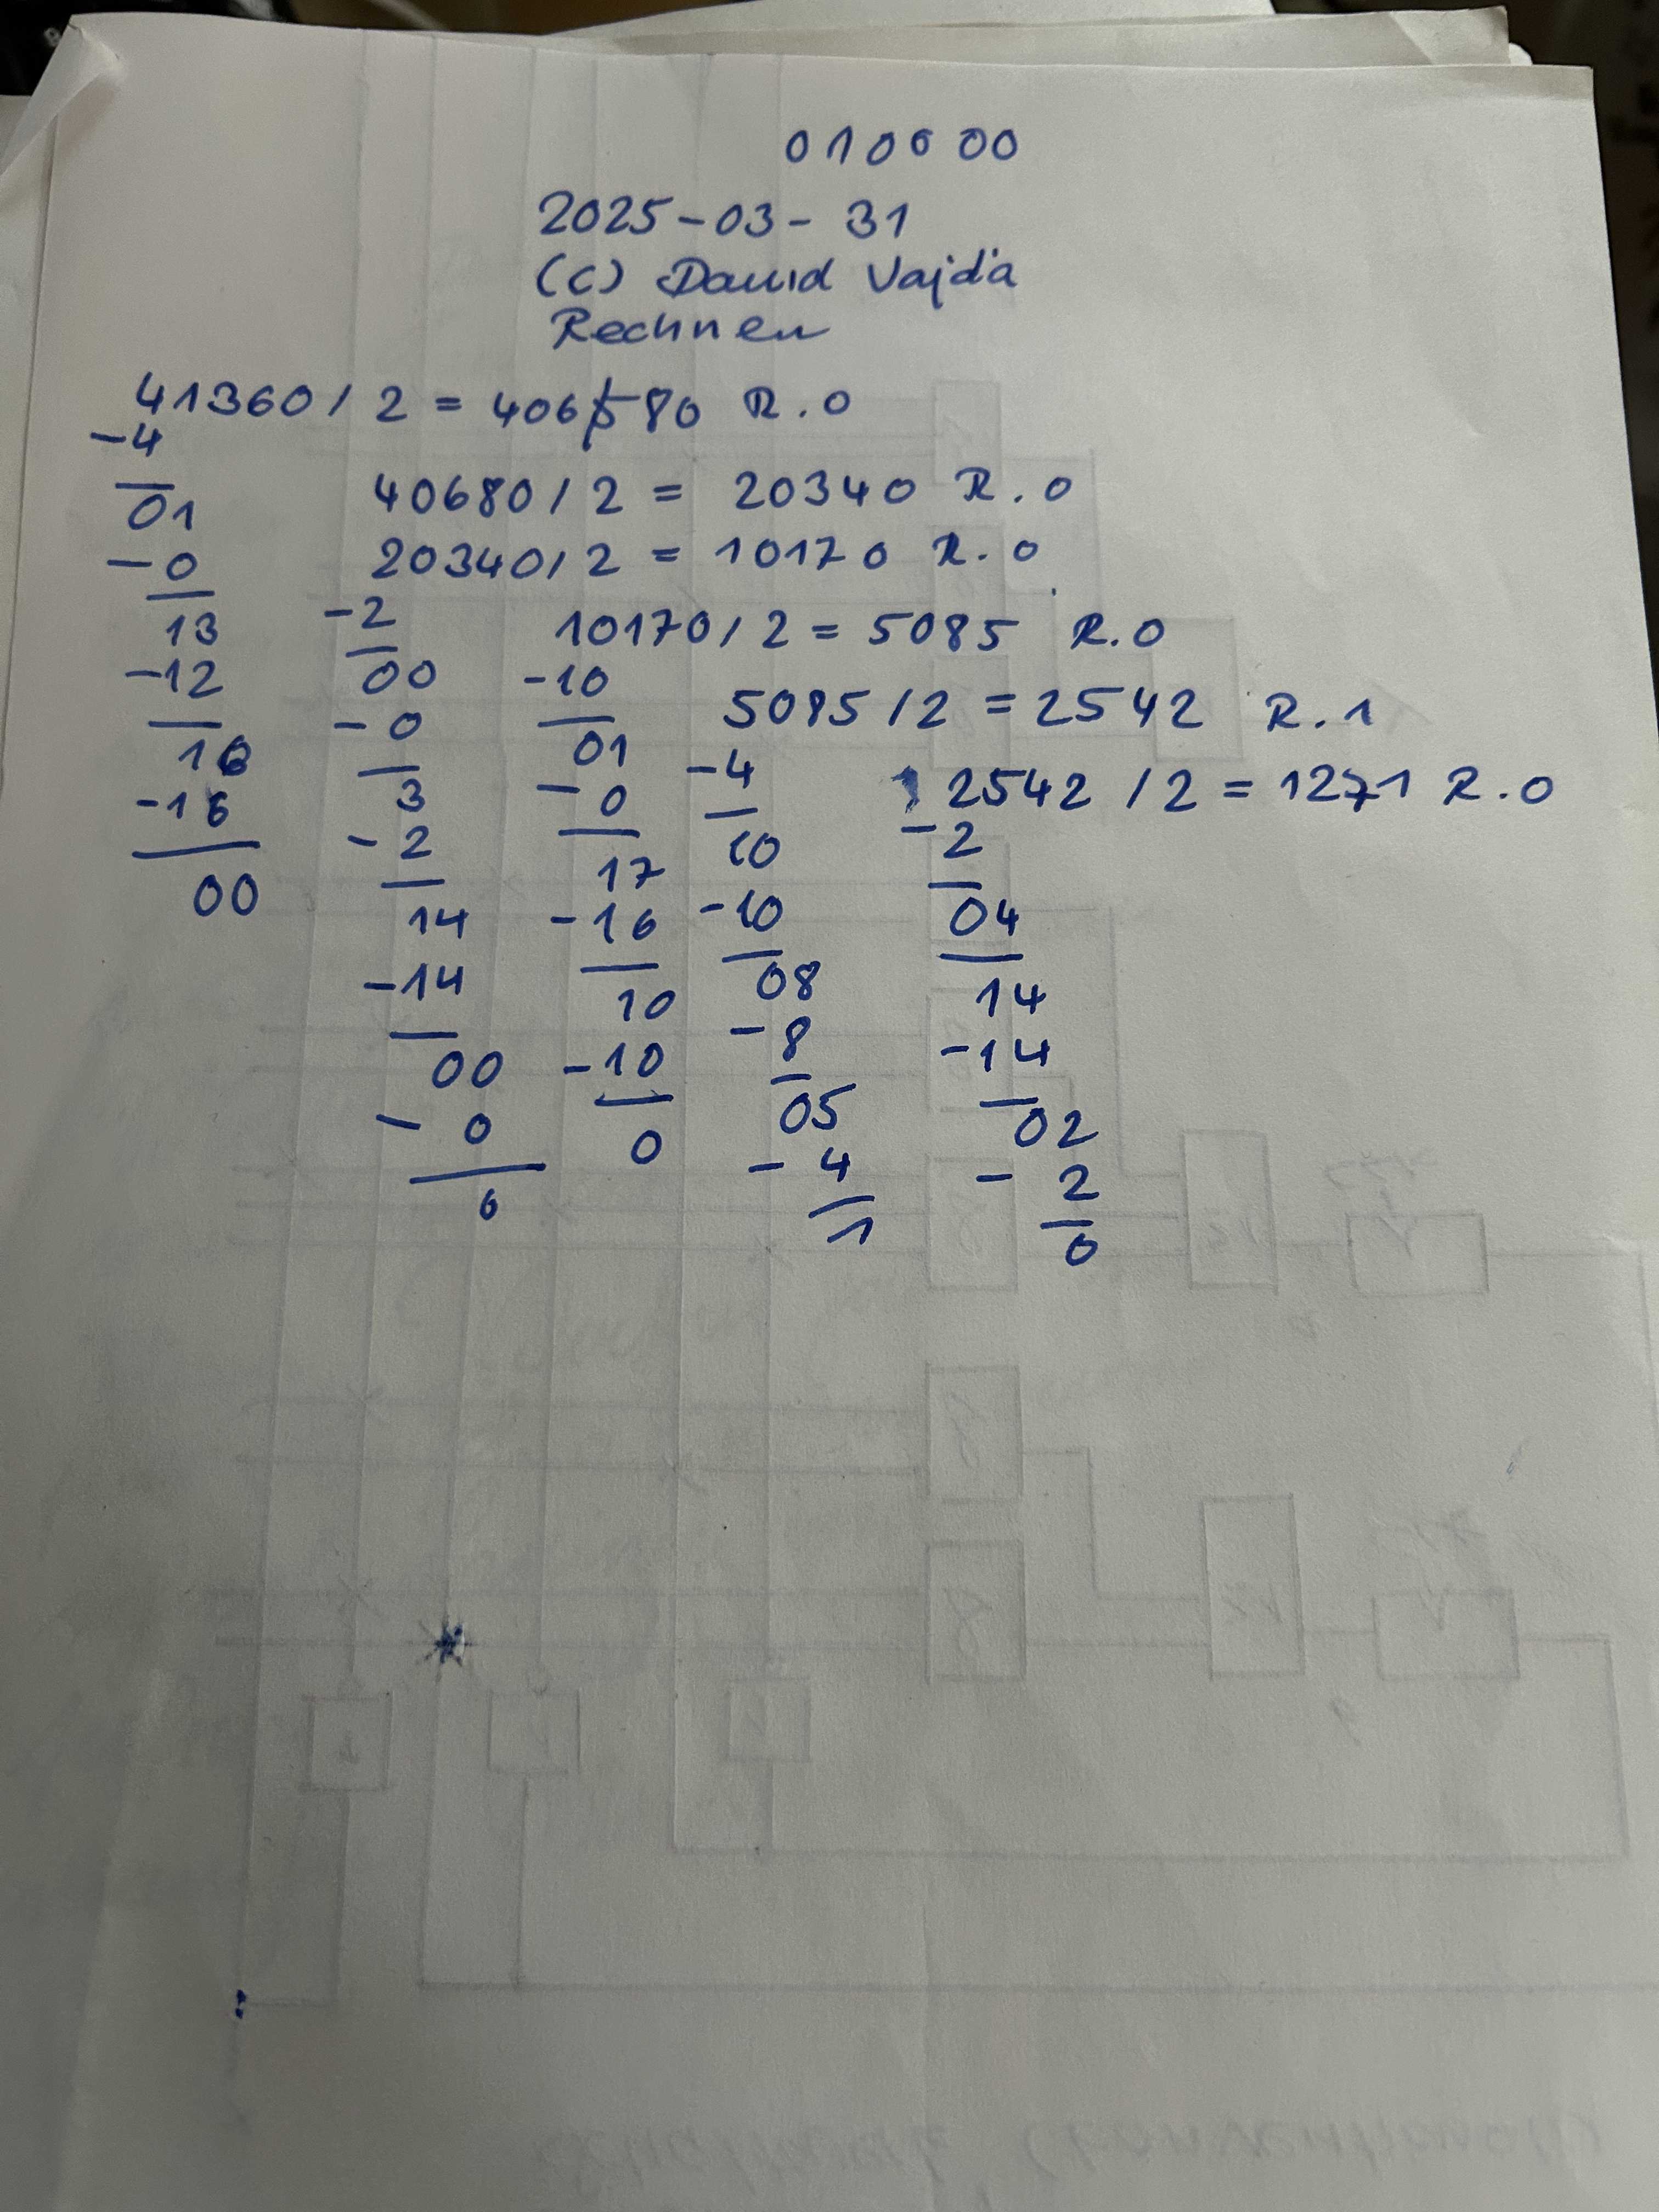 010000
2025-03-31
(C) David Vajda
Rechnen
41360 / 2 = 406 80 R.0
-4
01
-0
13
-12
16
-16
00
40680 / 2 = 20340 R.0
20340 / 2 = 10170 R.0
-2
00
-0
3
-2
14
-14
00
-0
0
10170 / 2 = 5085 R.0
-10
01
-0
17
-16
10
-10
0
5085 / 2 = 2542 R.1
-4
10
-10
08
-8
05
-4
1
2542 / 2 = 1271 R.0
-2
04
14
-14
02
-2
0